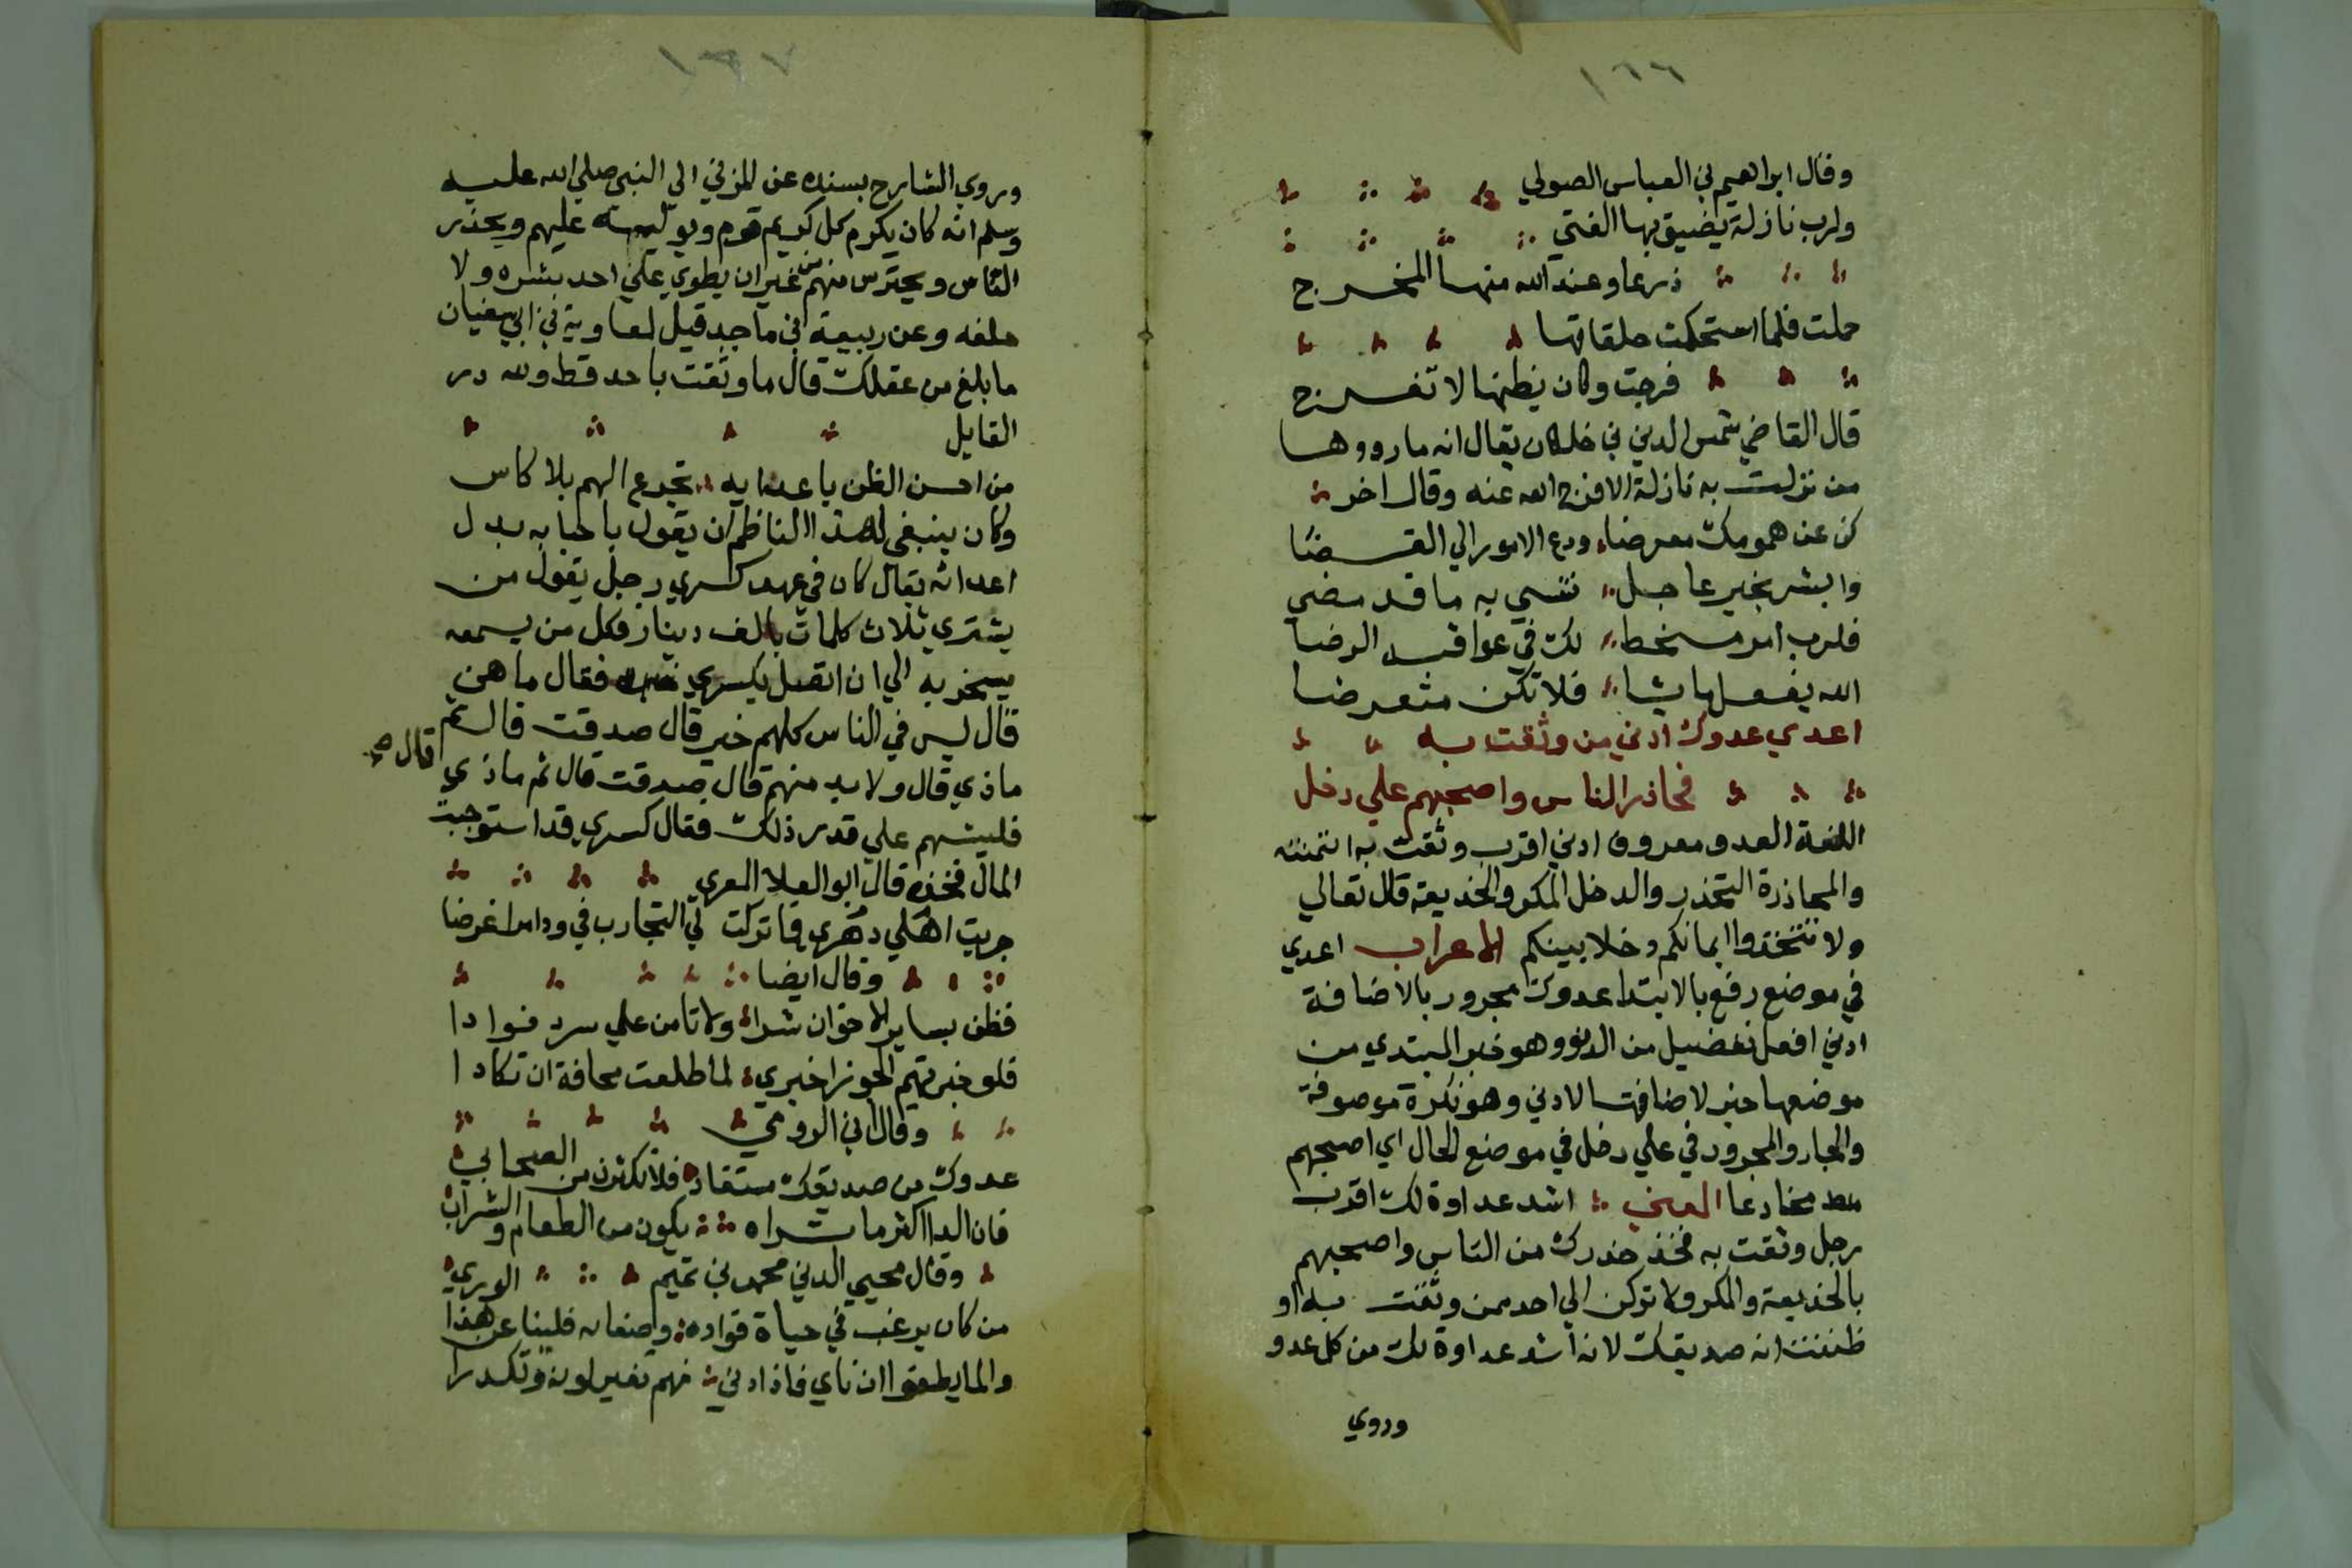 ١٣٦
وقال ابراهيم بن العباس الصولي
ولرب نازلة يضيق بها الفتي
ذرعا وعند الله منها المخرج
حملت فلما استحكمت حلقاتها
فرجت وكان يظنها لا تفرج
قال القاضي شمس الدين بن خلكان يقال انه ما رددها
من نزلت به نازلة الا فرج الله عنه وقال اخر
كن عن همومك معرضا ودع الامور الي القضا
وابشر بخير عاجل تنسي به ما قد مضي
فلرب امر مسخط لك في عواقبه الرضا
الله يفعل ما يشا فلا تكن متعرضا
اعدي عدوك ادني من وثقت به
فحاذر الناس واصحبهم علي دخل
اللغة العدو معروف ادني اقرب وثقت به ائتمنته
والمحاذرة التحذر والدخل المكر والخديعة قال تعالي
ولا تتخذوا ايمانكم دخلا بينكم الاعراب اعدي
في موضع رفع بالابتدا عدوك مجرور بالاضافة
ادني افعل تفضيل من الدنو وهو خبر المبتدي من
موضعها جر لاضافتها لادني وهو نكرة موصوفة
والجار والمجرور في علي دخل في موضع الحال اي اصحبهم
مخادعا المعني اشد عداوة لك اقرب
رجل وثقت به فخذ حذرك من الناس واصحبهم
بالخديعة والمكر ولا تركن الي احد ممن وثقت به او
ظننت انه صديقك لانه اشد عداوة لك من كل عدو
وروي
١٣٧
وروي الشارح بسنده عن المزني الي النبي صلي الله عليه
وسلم انه كان يكرم كل كريم قوم ويوليه عليهم ويحذر
الناس ويحترس منهم من غير ان يطوي علي احد بشره ولا
خلقه وعن ربيعة بن ماجد قيل لمعاوية بن ابي سفيان
ما بلغ من عقلك قال ما وثقت باحد قط ولله در
القايل
من احسن الظن باعدايه تجرع الهم بلا كاس
وكان ينبغي لهذا الناظم ان يقول باحبابه بدل
اعدائه يقال كان في عهد كسري رجل يقول من
يشتري ثلاث كلمات بالف دينار فكل من يسمعه
يسخر به الي ان اتصل بكسري فقال ما هن
قال ليس في الناس كلهم خير قال صدقت قال ثم
ماذي قال ولا بد منهم قال صدقت قال ثم ماذي قال صح
فليسهم علي قدر ذلك فقال كسري قد استوجبت
المال فخذه قال ابو العلا المعري
جربت اهلي دهري فما تركت لي التجارب في ود امرا غرضا
وقال ايضا
فظن بساير الاخوان شرا ولا تامن علي سر فوادا
فلو خبرتهم الجوزا خبري لما طلعت مخافة ان تكادا
وقال ابن الرومي
عدوك من صديقك مستفاد فلا تكثرن من الصحاب
فان الدا اكثر ما تراه يكون من الطعام والشراب
وقال محيي الدين محمد بن تميم
من كان يرغب في حياة فواده وصفائه فلينا عن هذا الوري
والما يطفوا ان ناي فاذا دني منهم تغير لونه وتكدرا